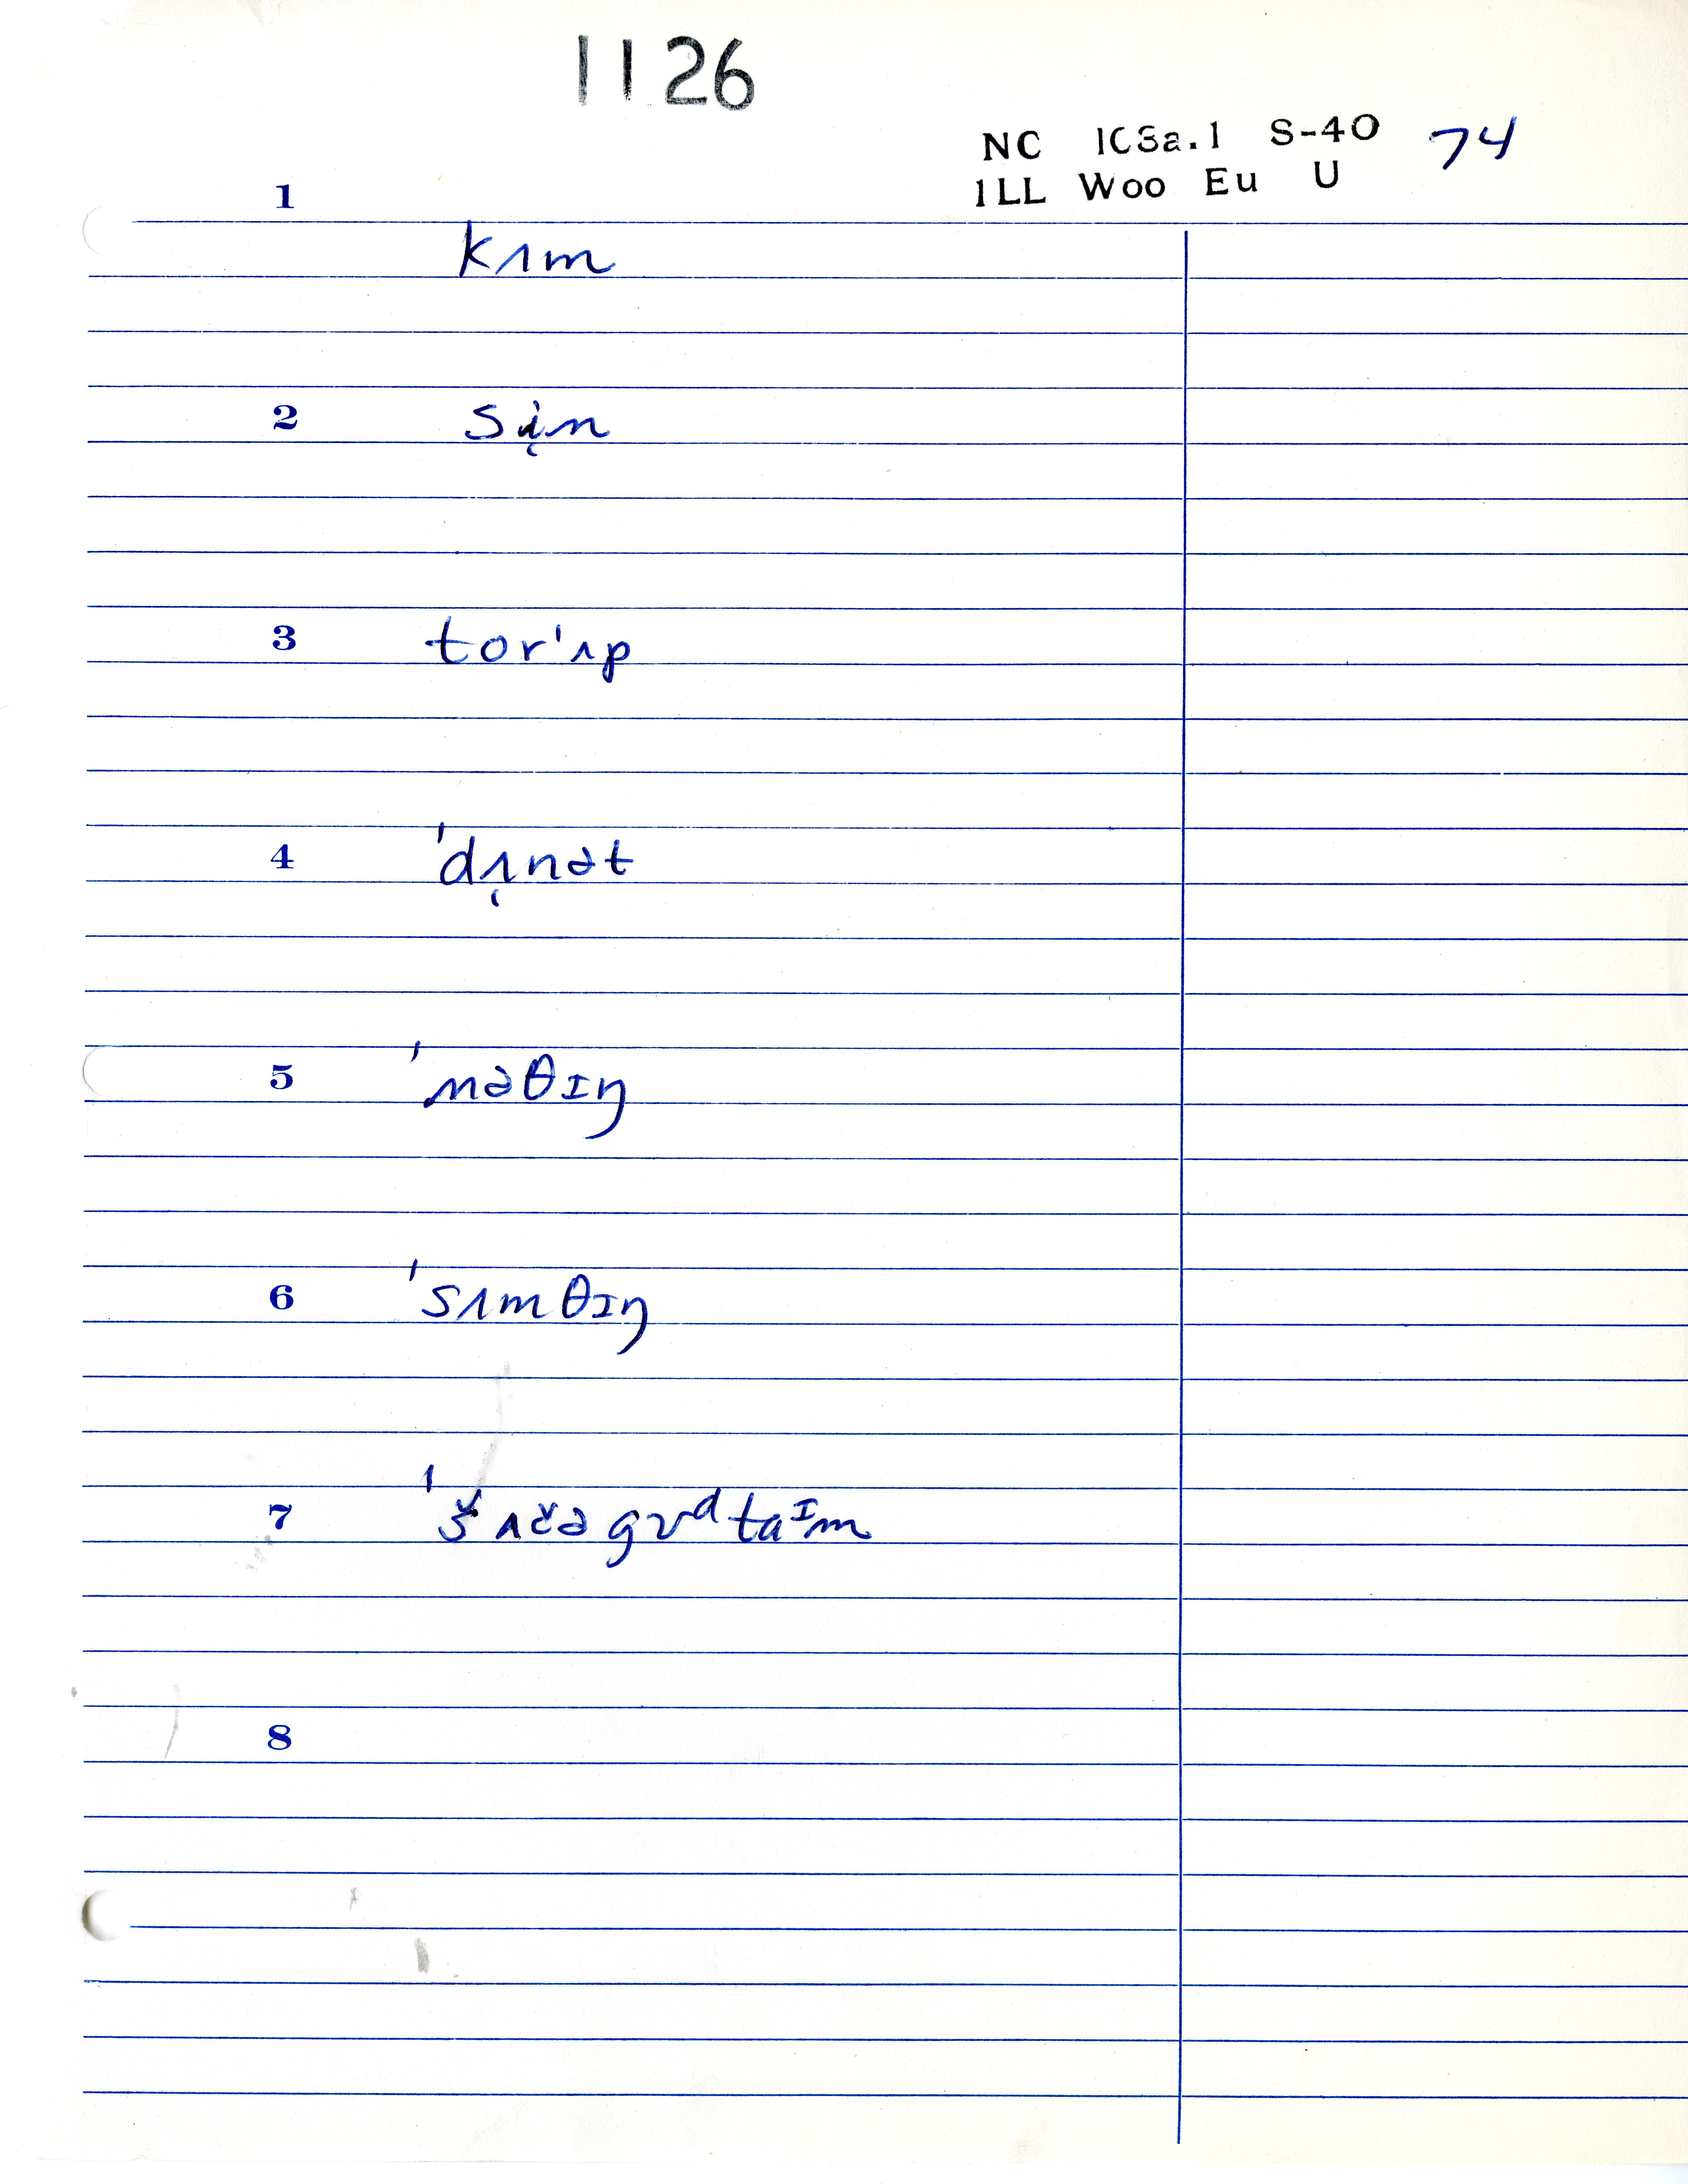 1126
NC 1C3a.1 S-40 74
1LL Woo Eu U
1
kʌm
2
sɨ̜n
3
tor'ʌp
4
'dʌ̜nət
5
'nəθɪŋ
6
'sʌmθɪŋ
7
'šʌčə gʊᵈtaᶦm
8